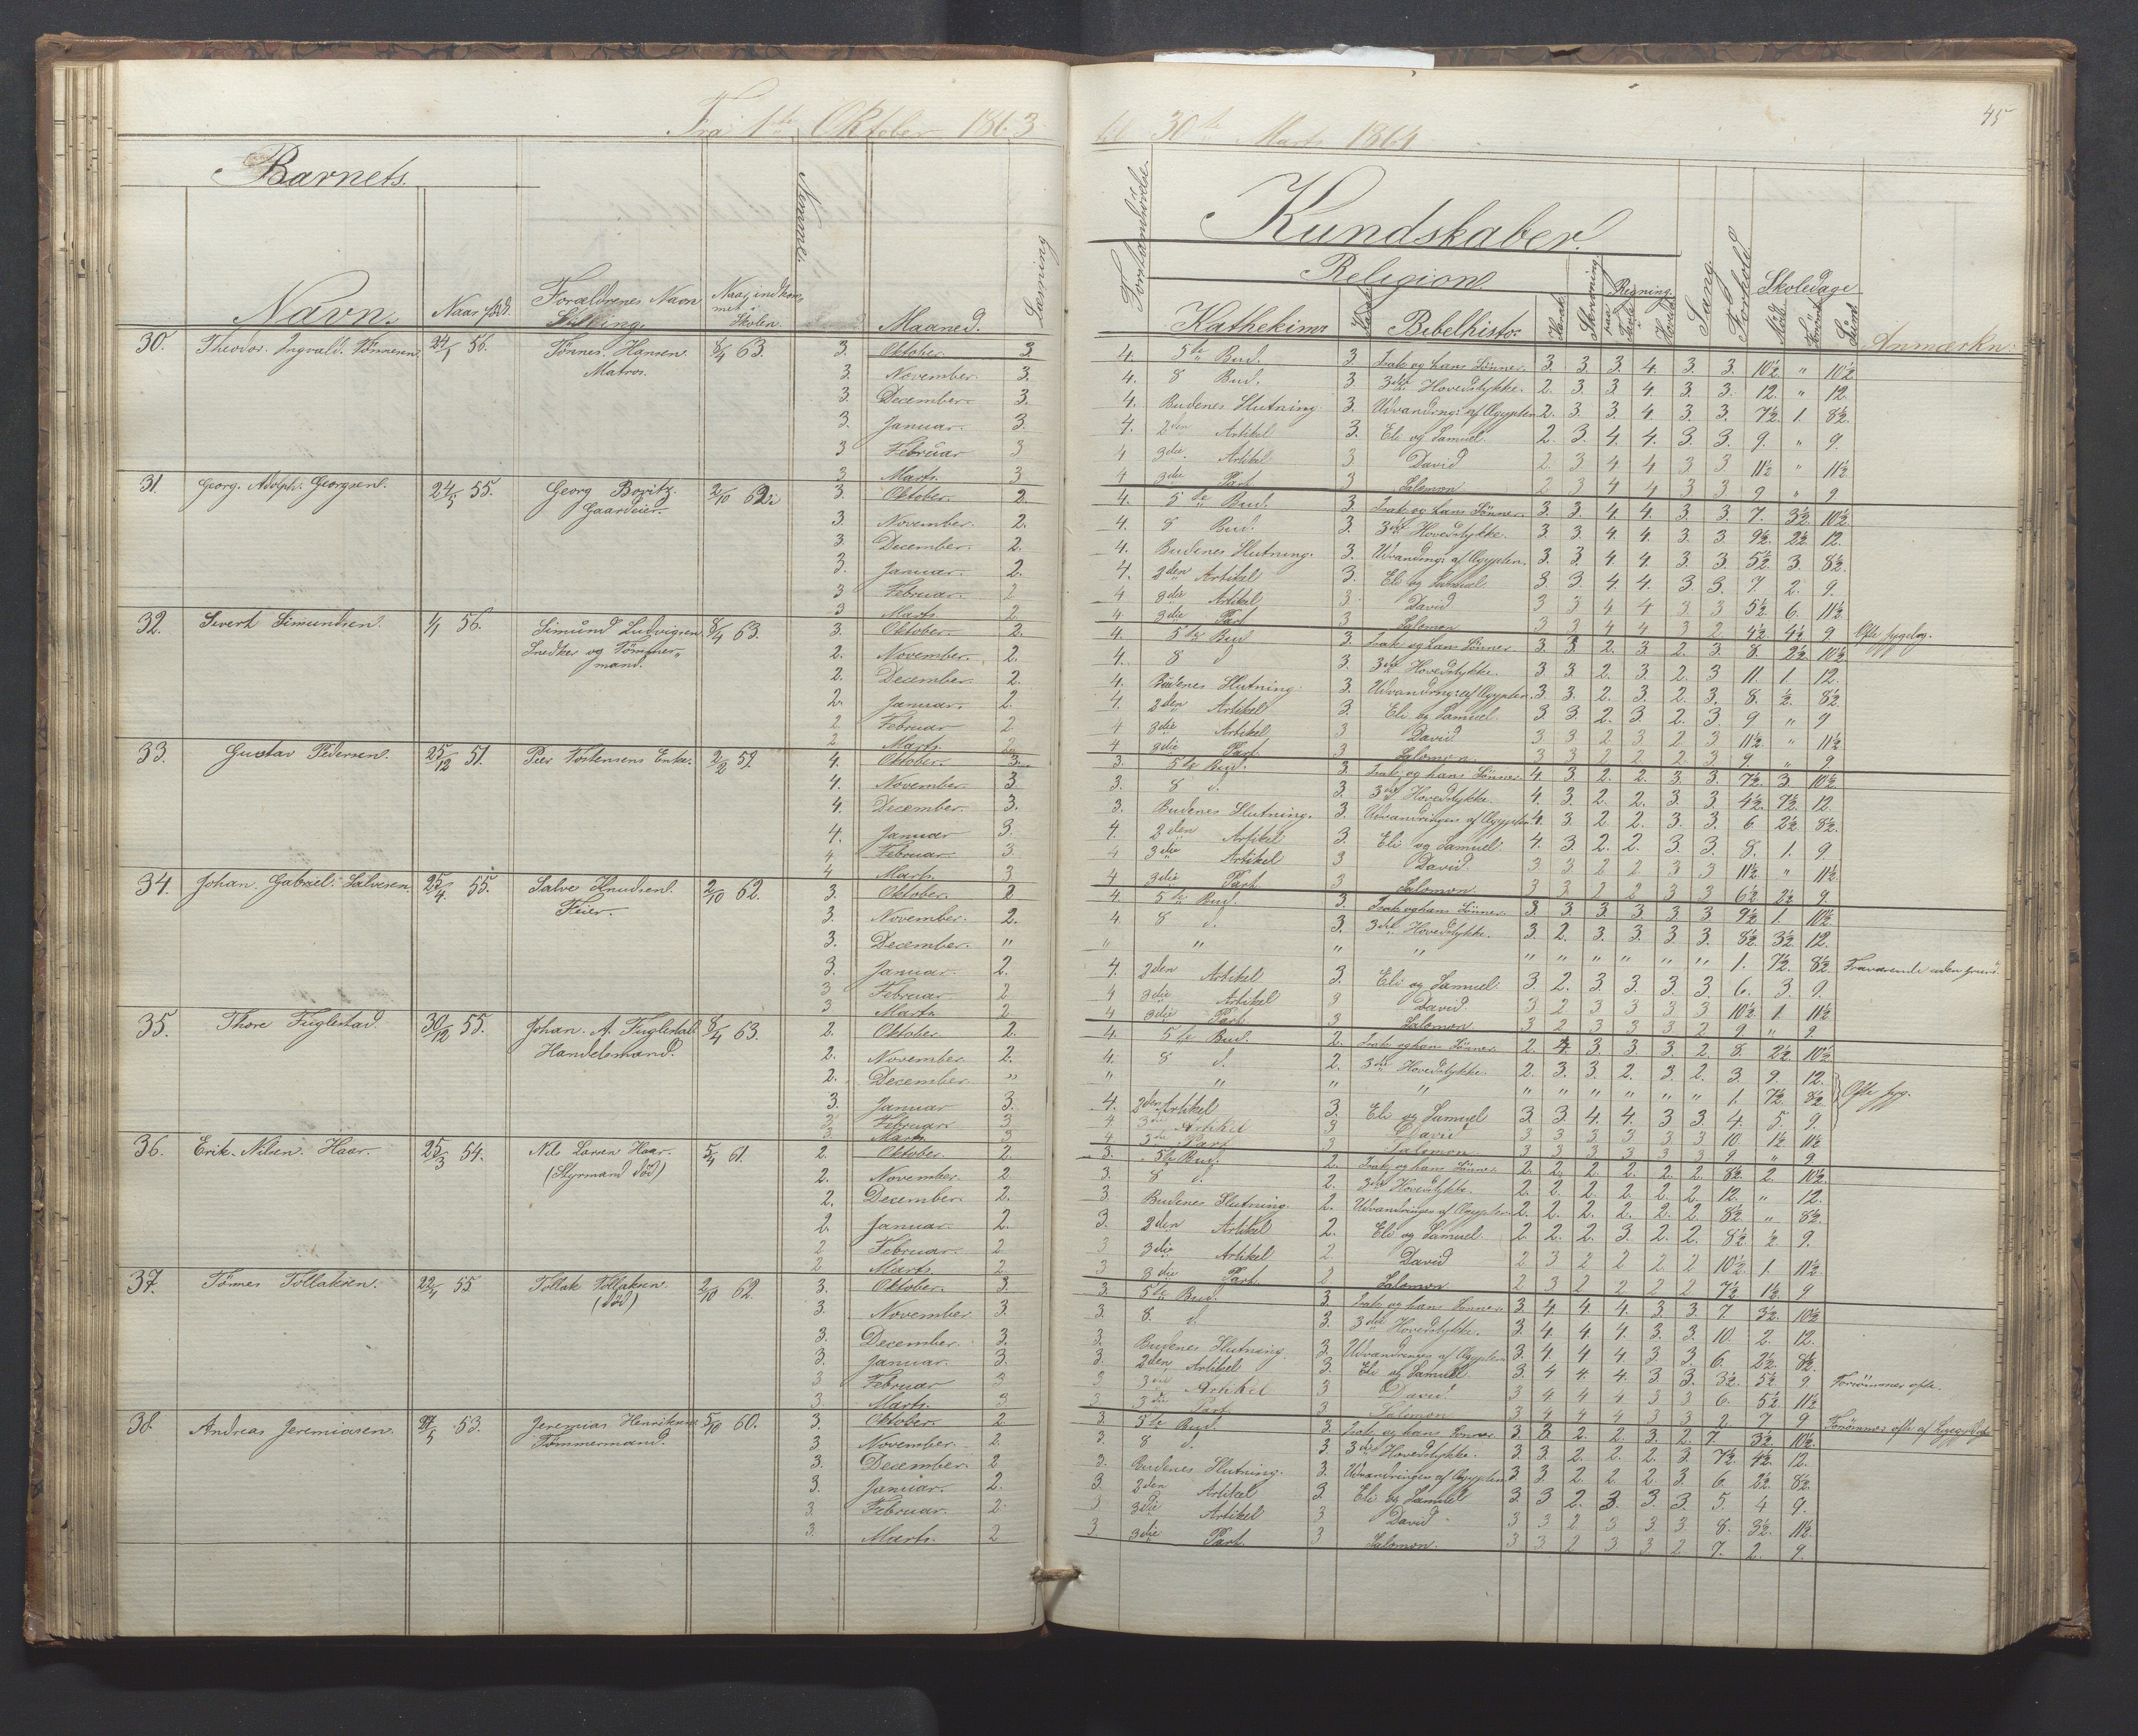 Fra 1ste Oktober 1863
til 30te Marts 1864
45
Barnets.
Navn. Naar född. Forældrenes Navn Stilling. Naar indkommet i Skolen. Nummer. Maaned. Læsning
Forstandsøvelse. Kundskaber. Religion. Kathekism: Karak: Bibelhisto: Karak: Skrivning. Regning. paa Tavle Hoved Sang. Forhold Skoledage Mödt. Forsömt Sum Anmærkn:
30. Theodor. Ingvald. Tönnesen. 24/1 56. Tönnes. Hansen. Matros. 8/4 63.
3. Oktober. 3. 4. 5te Bud. 3. Isak og hans Sönner. 3. 3. 3. 4. 3. 3. 10½ " 10½
3. November. 3. 4. 8 Bud. 3 3die Hovedstykke. 2. 3. 3 4. 3. 3. 12. " 12.
3. December. 3. 4. Budenes Slutning. 3. Udvandrng: af Ægypten. 2. 3. 3. 4. 3. 3. 7½ 1. 8½
3. Januar. 3. 4. 2den Artikel 3. Eli og Samuel. 2. 3. 4. 4. 3. 3. 9. " 9.
3 Februar 3 4 3die Artikel 3 David 2. 3 4 4 3 3 11½ " 11½
3 Marts. 3 4 3die Part 3 Salomon 2 3 4 4 3 3 9 " 9
31. Georg. Adolph. Georgsen. 24/5 55. Georg Bovitz. Gaardeier. 2/10 62.
3. Oktober. 2. 4. 5te Bud. 3. Isak og hans Sönner. 3. 3. 4 4. 3. 3. 7. 3½ 10½
3. November. 2. 4. 8 Bud. 3. 3die Hovedstykke. 3. 3. 4. 4. 3. 3 9½ 2½ 12.
3. December. 2. 4. Budenes Slutning. 3. Udvandrng: af Ægypten. 3. 3. 4 4. 3. 3. 5½ 3. 8½
3. Januar. 2. 4. 2den Artikel 3. Eli og Samuel 3. 3. 4. 4. 3 3. 7. 2. 9.
3 Februar. 2 4 3die Artikel 3 David 3 3 4 4 3 3 5½ 6. 11½
3 Marts. 2. 4 3die Part 3 Salomon 3 3 4 4 3 2. 4½ 4½ 9. Ofte sygelig.
32. Sivert Simundsen. 1/1 56. Simund Ludvigsen Snedker og Tömmermand. 8/4 63.
3. Oktober. 2. 4. 5te Bud 3. Isak og hans Sönner. 3. 3. 2. 3. 2. 3. 8. 2½ 10½
2. November. 2. 4. 8 d 3. 3die Hovedstykke. 3. 3. 2. 3. 2. 3 11. 1. 12.
2. December. 2. 4. Budenes Slutning. 3. Udvandrng: af Ægypten. 3. 3. 2. 3. 2. 3. 8. ½. 8½
2. Januar. 2. 4. 2den Artikel 3. Eli og Samuel. 3. 3. 2. 3 2. 3. 9 " 9
2 Februar 2 4 3die Artikel 3 David 3 3 2 3 2. 3 11½ " 11½
2. Marts. 2 4 3die Part. 3 Salomon. 3 3 2 2 2. 3 9. " 9.
33. Gustav Pedersen. 25/12 51. Peer Tostensens Enke. 2/2 59.
4. Oktober. 3. 3. 5te Bud. 3. Isak og hans Sönner. 4. 3. 2. 2. 3. 3. 7½ 3. 10½
4. November. 3 3. 8 d. 3. 3die Hovedstykke. 4. 3. 2. 2. 3. 3. 4½ 7½ 12.
4. December. 3. 3. Budenes Slutning. 3. Udvandringen af Ægypten. 4. 3 2. 2. 3. 3. 6. 2½ 8½
4. Januar 3. 4. 2den Artikel 3. Eli og Samuel. 4. 3 2. 2. 3. 3. 8. 1. 9.
4 Februar 3 4 3die Artikel 3 David. 3 3 2 2 3 3 11½ " 11½
4 Marts. 3 4 3die Part 3 Salomon. 3 3 2 2 3 3 6½ 2½ 9.
34. Johan. Gabriel. Salvesen. 25/4 55. Salve Knudsen. Feier. 2/10 62.
3. Oktober. 2 4. 5te Bud. 3. Isak og hans Sönner. 3. 3. 3. 3. 3. 3 9½ 1. 10½
3. November. 2. 4. 8 d. 3. 3die Hovedstykke. 3. 2. 3. 3. 3. 3. 8½ 3½ 12.
3. December. " " " " " " " " " " " 1. 7½ 8½ Fraværende uden Grund.
3. Januar. 2. 4. 2den Artikel 3. Eli og Samuel. 3 2. 3 3. 3. 3 6. 3. 9.
3 Februar 2 4 3die Artikel 3 David. 3 2 3 3 3 3 10½ 1. 11½
3 Marts 2 4 3die Part 3 Salomon 3 2 3 3 3 2 9 " 9.
35. Thore Fuglestad. 30/12 55. Johan. A. Fuglestad. Handelsmand. 8/4 63.
2. Oktober 2. 4. 5te Bud. 2. Isak og hans Sönner. 2. 4. 3. 3. 3. 2. 8. 2½ 10½
2. November. 2. 4. 8 d. 2. 3die Hovedstykke. 2. 3. 3. 2. 3. 2. 3. 9. 12.
2. December " " " " " " " " " " " 1. 7½ 8½ Ofte syg.
3. Januar 3. 4. 2den Artikel 3. Eli og Samuel 3. 3. 4. 4. 3 3. 4. 5. 9.
3 Februar 3 4. 3die Artikel 3 David 3 3 3 3 3 3 10 1½ 11½
3. Marts. 3 4 3die Part 3 Salomon 3 3 3 3 3 3 9 " 9
36. Erik. Nilsen. Haar. 25/3 54. Nils Larsen Haar. (Styrmand död) 5/4 61.
2. Oktober. 2. 3. 5te Bud. 2. Isak og hans Sönner. 2. 2. 2. 2. 2. 2. 8½ 2. 10½
2. November. 2. 3. 8 d. 2. 3die Hovedstykke. 2. 2. 2. 2. 2. 2. 12. " 12.
2. December. 2. 3. Budenes Slutning. 2. Udvandringen af Ægypten. 2. 2. 2. 2. 2. 2. 8½ " 8½
2. Januar. 2. 3. 2den Artikel 2. Eli og Samuel. 2. 2. 2. 3. 2. 2. 8½ ½ 9.
2 Februar. 2 3 3die Artikel 2 David 2 3 2 2 2 2 10½ 1. 11½
2 Marts. 2 3 3die Part. 2 Salomon 2 3 2 2 2 2 7½ 1½ 9
37. Tönnes Tollaksen. 22/1 55. Tollak Tollaksen. (död) 2/10 62.
3. Oktober. 3. 3. 5te Bud. 3. Isak og hans Sönner. 3. 4. 4. 4. 3. 3. 7. 3½ 10½
3. November 3. 3. 8. d. 3. 3die Hovedstykke. 3. 4. 4. 4. 3. 3. 10. 2. 12.
3. December. 3. 3. Budenes Slutning. 3. Udvandringen af Ægypten 3. 4 4. 4. 3 3. 6. 2½ 8½
3. Januar. 3. 3. 2den Artikel 3. Eli og Samuel. 3. 4 4. 4. 3 3. 3½ 5½ 9 Forsömmer ofte.
3 Februar 3 3 3die Artikel 3 David 3 4 4 4 3 3 6. 5½ 11½
3. Marts. 3 3 3die Part. 3 Salomon 3 4 4 4 3 3 2 7 9 Forsömmer ofte af
38. Andreas Jeremiasen. 27/5 53. Jeremias Henriksen Tömmermand. 5/10 60.
3. Oktober. 2 3. 5te Bud. 3. Isak og hans Sönner 3. 3. 2. 2. 3. 2. 7. 3½ 10½
3. November. 2. 3. 8 d. 3 3die Hovedstykke. 3. 3. 2. 2. 2. 3 7½ 4½ 12.
3. December. 2 3. Budenes Slutning. 3. Udvandringen af Ægypten 3 3. 2. 2. 2. 3 6. 2½ 8½
3. Januar. 2. 3. 2den Artikel 3. Eli og Samuel 3. 3 2. 3. 3. 3. 5. 4 9.
3. Februar. 2 3 3die Artikel 3 David 3 3 2 3 3. 3. 8. 3½ 11½
3. Marts. 2 3 3die Part. 3 Salomon. 3 3 2 3 3 2 7. 2. 9.